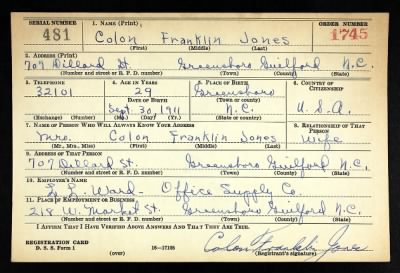 SERIAL NUMBER 1. NAME (Print) ORDER NUMBER
481 Colon Franklin Jones 1745
(First) (Middle) (Last)
2. ADDRESS (Print)
707 Dillard St. Greensboro Guilford N.C.
(Number and street or R. F. D. number) (Town) (County) (State)
3. TELEPHONE 4. AGE IN YEARS 5. PLACE OF BIRTH 6. COUNTRY OF CITIZENSHIP
32101 29 Greensboro
DATE OF BIRTH (Town or county)
Sept. 30, 1911 N.C. U.S.A.
(Exchange) (No.) (Mo.) (Day) (Yr.) (State or country)
7. NAME OF PERSON WHO WILL ALWAYS KNOW YOUR ADDRESS 8. RELATIONSHIP OF THAT PERSON
Mrs. Colon Franklin Jones Wife
(Mr., Mrs., Miss) (First) (Middle) (Last)
9. ADDRESS OF THAT PERSON
707 Dillard St. Greensboro Guilford N.C.
(Number and street or R. F. D. number) (Town) (County) (State)
10. EMPLOYER'S NAME
Ward- Office Supply Co.
11. PLACE OF EMPLOYMENT OR BUSINESS
218 W. Market St. Greensboro Guilford N.C.
(Number and street or R. F. D. number) (Town) (County) (State)
I AFFIRM THAT I HAVE VERIFIED ABOVE ANSWERS AND THAT THEY ARE TRUE.
REGISTRATION CARD
D. S. S. Form 1 16-17105 Colon Franklin Jones
(over) (Registrant's signature)